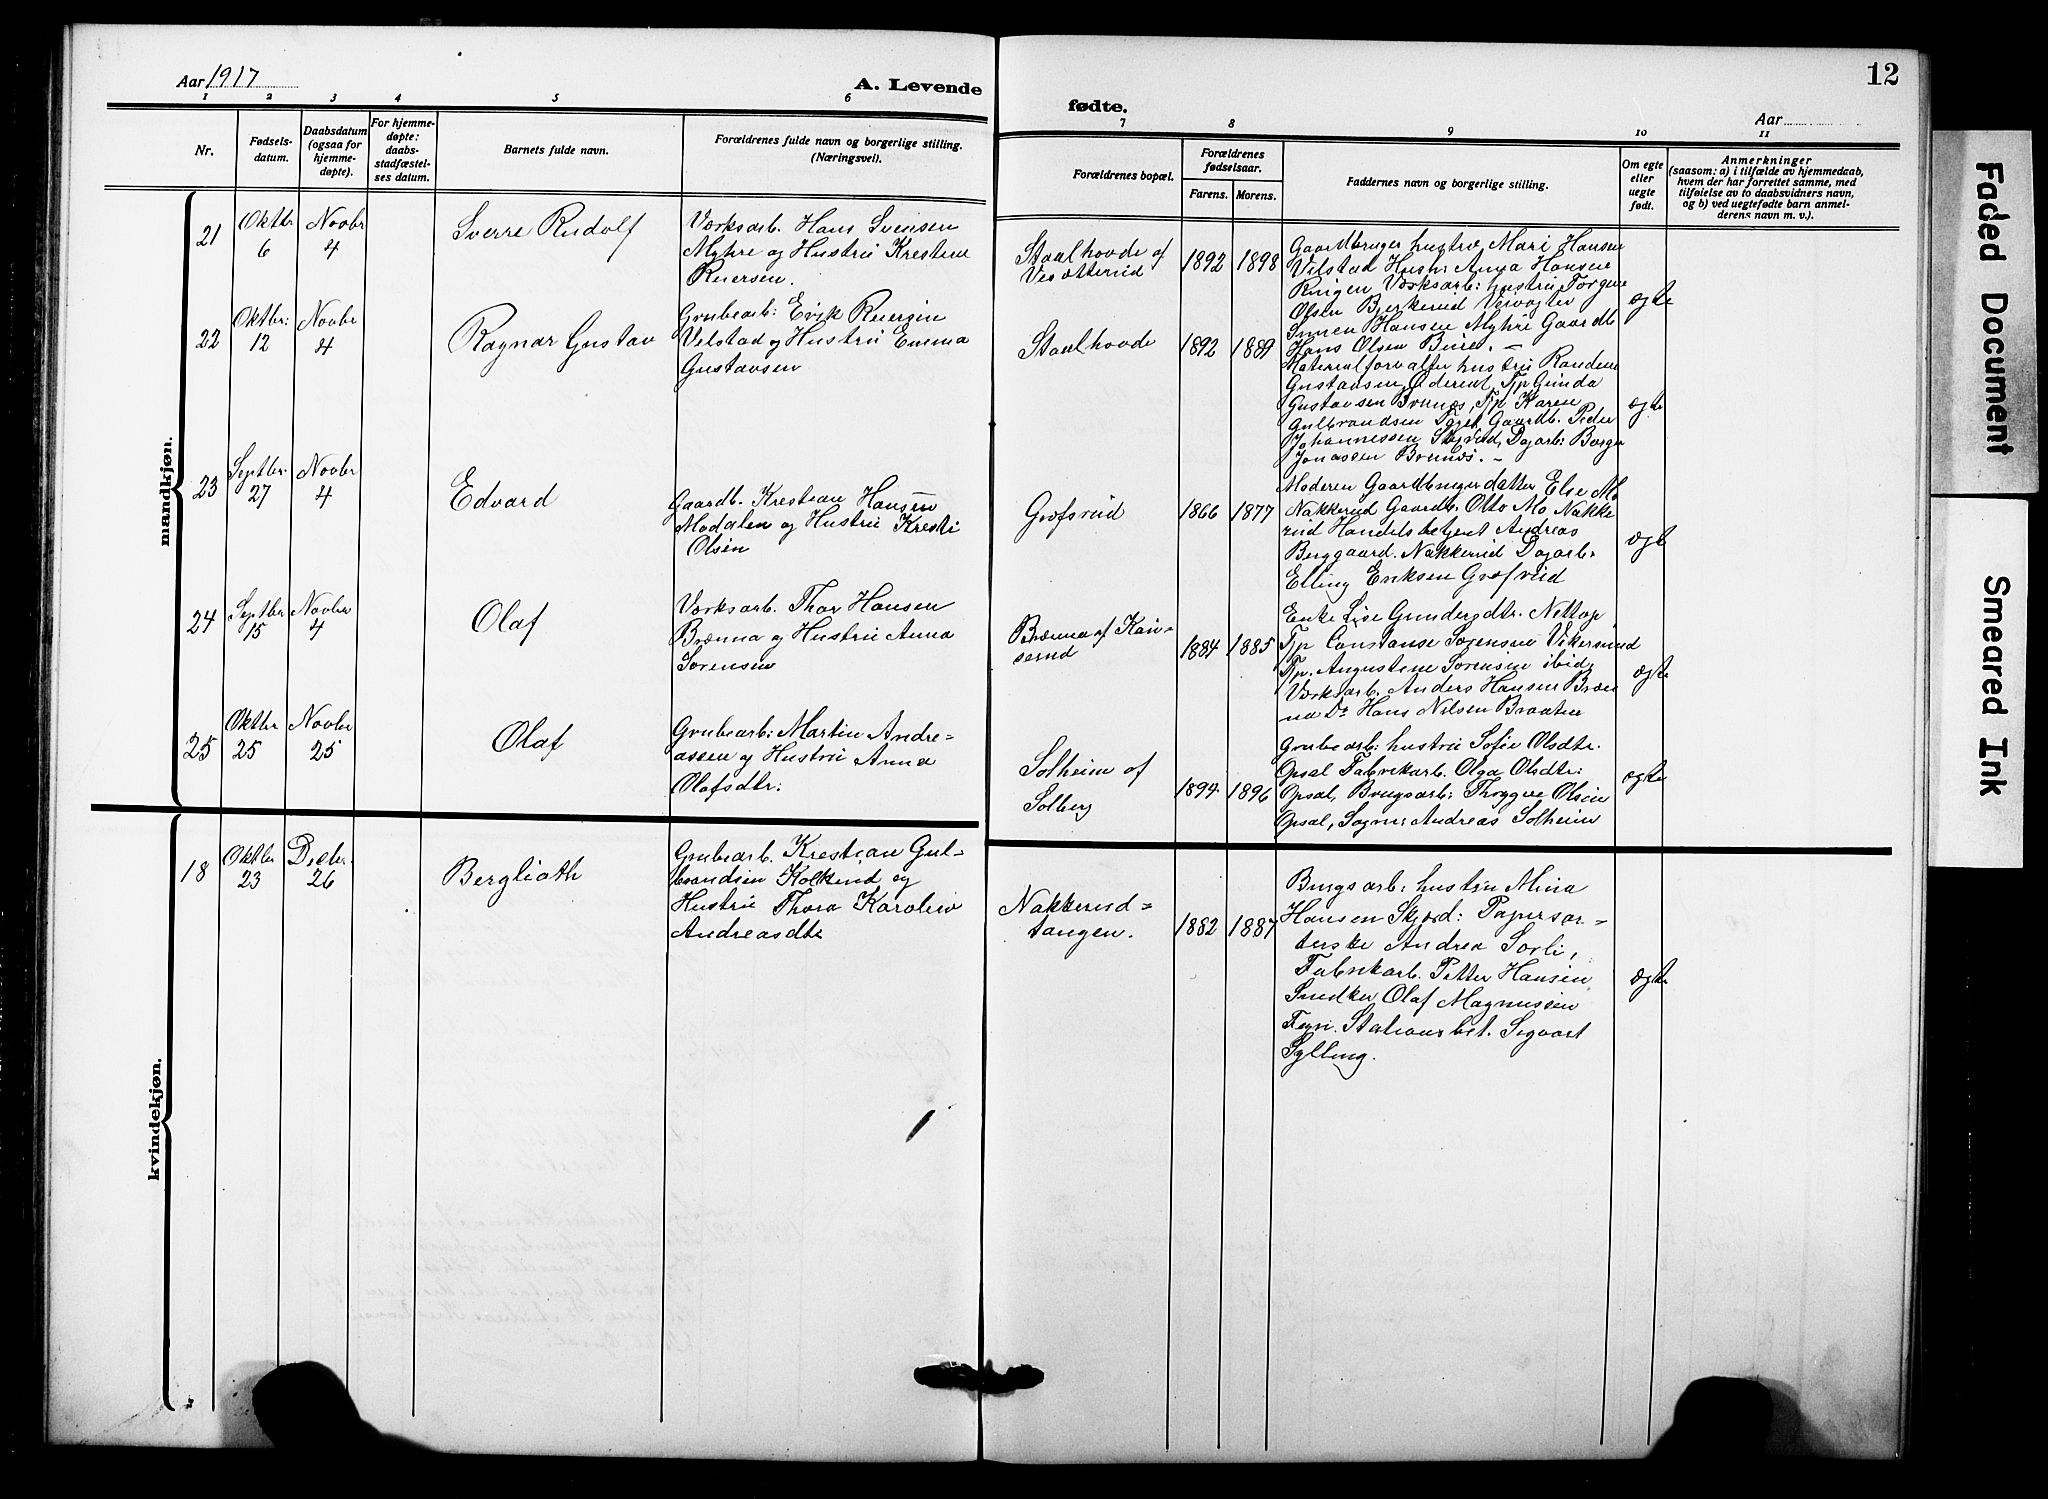 12
Aar 1917
A. Levende
fødte.
Aar
1 2 3 4 5 6 7 8 9 10 11
Nr.
Fødsels-
datum.
Daabsdatum
(ogsaa for
hjemme-
døpte).
For hjemme-
døpte:
daabs-
stadfæstel-
ses datum.
Barnets fulde navn.
Forældrenes fulde navn og borgerlige stilling.
(Næringsvei).
Forældrenes bopæl.
Forældrenes
fødselsaar.
Farens. Morens.
Faddernes navn og borgerlige stilling.
Om egte
eller
uegte
født.
Anmerkninger
(saasom: a) i tilfælde av hjemmedaab,
hvem der har forrettet samme, med
tilføielse av to daabsvidners navn,
og b) ved uegtefødte barn anmel-
derens navn m. v.).
mandkjøn.
21
Oktbr
6
Novbr
4
Sverre Rudolf
Værksarb. Hans Svensen
Myhre og Hustru Krestine
Iversen.
Staalhovde af
1892 1898
Gaardbruger hustru Mari Hansen
Velstad Hustr Anna Hansen
Værksarb: hustru Torgine
Olsen Bjerkerud Veivogter
Simen Hansen Myhre Gaardb
Hans Olsen Bure. –
ægte
22
Oktbr:
12
Novbr
4
Ragnar Gustav
Grubearb: Erik Iversen
Velstad og Hustru Emma
Gustavsen
Staalhovde
1892 1889
Materialforvalter hustru Randine
Gustavsen Oderud, Tjp Gunda
Gustavsen Brunæs, Tjp Karen
Gulbrandsen Gaardb. Peder
Johannessen Dagarb: Borger
Jonassen Brunæs. –
ægte
23
Septbr.
27
Novbr
4
Edvard
Gaardb. Krestian Hansen
Modalen og Hustru Kresti
Olsen
Grøfsrud
1866 1877
Moderen Gaardbrugerdatter Else Mo
Nakkerud Gaardb. Otto Mo Nakke
rud Handelsbetjent Andreas
Berggaard. Nakkerud Dagarb.
Elling Eriksen Grøfsrud
ægt
24
Septbr
15
Novbr
4
Olaf
Værksarb. Thor Hansen
Brænna og Hustru Anna
Sørensen
Brænna af
1884 1885
Enke Lise Gundersdtr. Nettop
Tjp Constanse Sørensen Vikersund
Tjp. Augustine Sørensen ibid
Værksarb. Anders Hansen Bræn
na Do Hans Nilsen Braaten
ægte
25
Oktbr
25
Novbr
25
Olaf
Grubearb: Martin Andre=
assen og Hustru Anna
Olafsdtr:
Solheim af
Solberg
1894. 1896
Grubearb: hustru Sofie Olsdtr.
Opsal Fabrikarb. Olga Olsdtr:
Opsal, Brugsarb: Thrygve Olsen
Opsal, Sogner Andreas Solheim
ægte
kvindekjøn.
18
Oktbr
23
Decbr.
26
Bergliøth
Grubearb. Krestian Gul=
brandsen Kolkerud og
Hustru Thora Karoline
Andreasdtr
Nakkerud=
tangen.
1882 1887
Brugsarb: hustru Mina
Hansen Skjørd: Papirsor=
terske Andrea Sørli,
Fabrikarb. Petter Hansen
Snedker Olaf Magnussen
Stationsbet. Sigvart
Sylling.
ægte
Faded Document
Smeared Ink